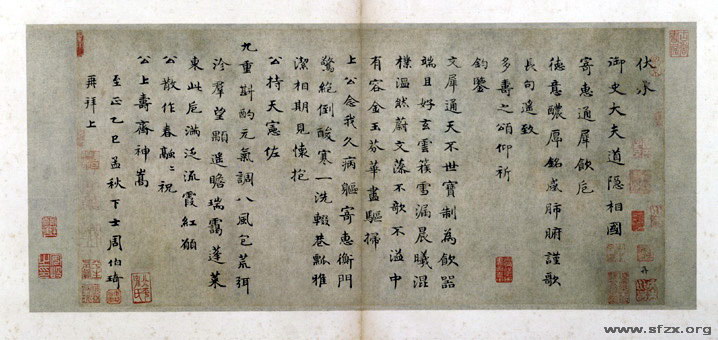 伏承
御史大夫道隐相國
寄惠通犀飲卮
德意醲厚銘感肺腑謹歌
長句邁致
多壽之頌仰祈
鈞鑒
文犀通天不世寶制為飲器
端且好玄雲簇雪漏晨曦混
樸溫然蔚文藻不歌不溢中
有容金玉芬華盡驅掃
上公念我久病軀寄惠衡門
驚絕倒酸寒一洗輟巷瓢雅
潔相期見懷抱
公持天憲佐
九重斟酌元氣調八風包荒弭
沴羣望顯遥瞻瑞靄蓬萊
東此卮滿泛流霞紅願
公散作春融二二祝
公上壽齊神嵩
至正乙巳孟秋下士周伯琦
再拜上
www.sfzx.org